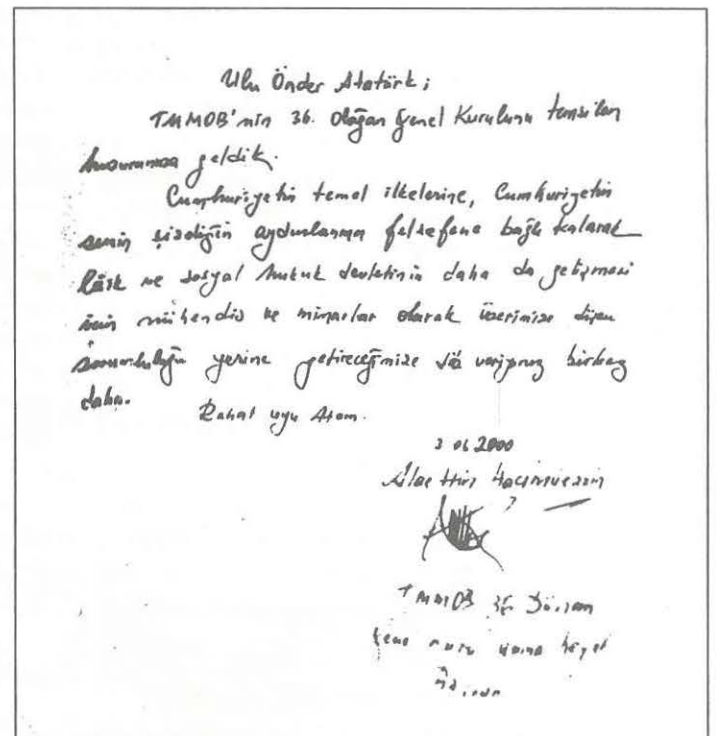 Ulu Önder Atatürk;
TMMOB'nin 36. Olağan Genel Kurulunu temsilen
huzuruna geldik.
Cumhuriyetin temel ilkelerine, Cumhuriyetin
senin çizdiğin aydınlanma felsefene bağlı kalarak
lâik ve sosyal hukuk devletinin daha da gelişmesi
için mühendis ve mimarlar olarak üzerimize düşen
sorumluluğu yerine getireceğimize söz veriyoruz birkez
daha.
Rahat uyu Atam.
3 06 2000
Alaettin Hacımüezzin
TMMOB 36. Dönem